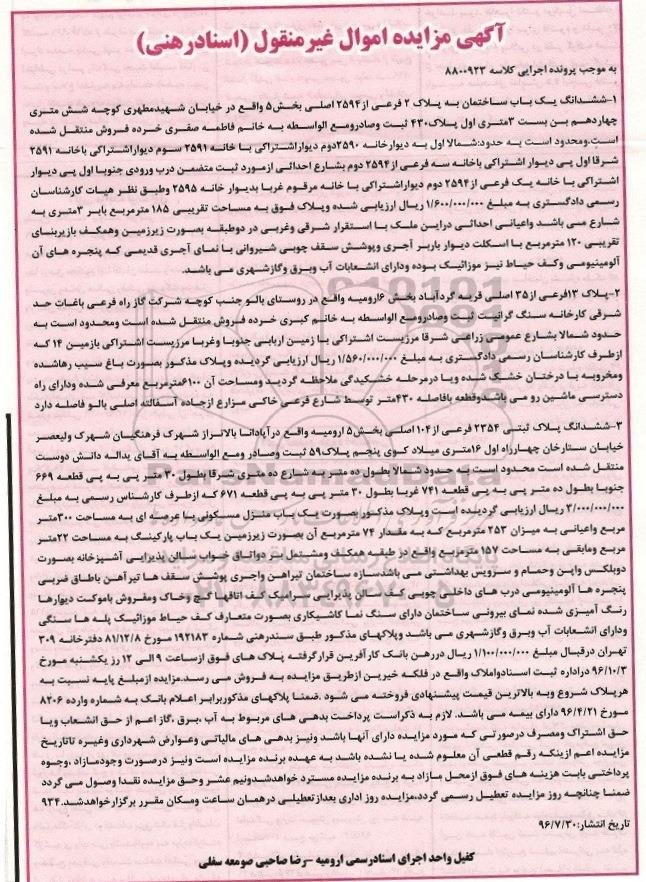 آگهی مزایده اموال غیرمنقول (اسنادرهنی)
به موجب پرونده اجرایی کلاسه ۸۸۰۰۹۲۳
۱-ششدانگ یک باب ساختمان به پلاک ۲ فرعی از۲۵۹۴ اصلی بخش۵ واقع در خیابان شهیدمطهری کوچه شش متری
چهاردهم بن بست ۳متری اول پلاک۴۳۰ ثبت وصادرومع الواسطه به خانم فاطمه صفری خرده فروش منتقل شده
است.ومحدود است به حدود:شمالا اول به دیوارخانه ۲۵۹۰دوم دیواراشتراکی با خانه ۲۵۹۱ سوم دیواراشتراکی باخانه ۲۵۹۱
شرقا اول پی دیوار اشتراکی باخانه سه فرعی از۲۵۹۴ دوم بشارع احداثی ازمورد ثبت متضمن درب ورودی جنوبا اول پی دیوار
اشتراکی با خانه یک فرعی از۲۵۹۴ دوم دیواراشتراکی با خانه مرقوم غربا بدیوار خانه ۲۵۹۵ وطبق نظر هیات کارشناسان
رسمی دادگستری به مبلغ ۱/۶۰۰/۰۰۰/۰۰۰ ریال ارزیابی شده وپلاک فوق به مساحت تقریبی ۱۸۵ مترمربع بابر ۳متری به
شارع می باشد واعیانی احداثی دراین ملک با استقرار شرقی وغربی در دوطبقه بصورت زیرزمین وهمکف بازیربنای
تقریبی ۱۲۰ مترمربع با اسکلت دیوار باربر آجری وپوشش سقف چوبی شیروانی با نمای آجری قدیمی که پنجره های آن
آلومینیومی وکف حیاط نیز موزائیک بوده ودارای انشعابات آب وبرق وگازشهری می باشد.
۲-پلاک ۱۳فرعی از۳۵ اصلی قریه گردآباد بخش ۱۶ارومیه واقع در روستای بالو جنب کوچه شرکت گاز راه فرعی باغات حد
شرقی کارخانه سنگ گرانیت ثبت وصادرومع الواسطه به خانم کبری خرده فروش منتقل شده است ومحدود است به
حدود شمالا بشارع عمومی زراعی شرقا مرزیست اشتراکی با زمین اربابی جنوبا وغربا مرزیست اشتراکی بازمین ۱۴ که
ازطرف کارشناسان رسمی دادگستری به مبلغ ۱/۵۶۰/۰۰۰/۰۰۰ ریال ارزیابی گردیده وپلاک مذکور بصورت باغ سیب رهاشده
ومخروبه با درختان خشک شده ویا درمرحله خشکیدگی ملاحظه گردید ومساحت آن ۶۱۰۰مترمربع معرفی شده ودارای راه
دسترسی ماشین رو می باشدوقطعه بافاصله ۴۳۰متر توسط شارع فرعی خاکی مزارع ازجاده آسفالته اصلی بالو فاصله دارد
۳-ششدانگ پلاک ثبتی ۲۳۵۴ فرعی از۱۰۴ اصلی بخش۵ ارومیه واقع درآپادانا بالاتراز شهرک فرهنگیان شهرک ولیعصر
خیابان ستارخان چهارراه اول ۱۶متری میلاد کوی پنجم پلاک۵۹ ثبت وصادر ومع الواسطه به آقای یداله دانش دوست
منتقل شده است محدود است به حدود شمالا بطول ده متر به شارع ده متری شرقا بطول ۳۰ متر پی به پی قطعه ۶۶۹
جنوبا بطول ده متر پی به پی قطعه ۷۴۱ غربا بطول ۳۰ متر پی به پی قطعه ۶۷۱ که ازطرف کارشناس رسمی به مبلغ
۳/۰۰۰/۰۰۰/۰۰۰ ریال ارزیابی گردیده است وپلاک مذکور بصورت یک باب منزل مسکونی با عرصه ای به مساحت ۳۰۰متر
مربع واعیانی به میزان ۲۵۳ مترمربع که به مقدار ۷۴ مترمربع آن بصورت زیرزمین یک باب پارکینگ به مساحت ۲۲متر
مربع ومابقی به مساحت ۱۵۷ مترمربع واقع در طبقه همکف ومشتمل بر دواتاق خواب سالن پذیرایی آشپزخانه بصورت
دوبلکس واین وحمام و سرویس بهداشتی می باشدسازه ساختمان تیراهن واجری پوشش سقف ها تیرآهن باطاق ضربی
پنجره ها آلومینیومی درب های داخلی چوبی کف سالن پذیرایی سرامیک کف اتاقها گچ وخاک ومفروش باموکت دیوارها
رنگ آمیزی شده نمای بیرونی ساختمان دارای سنگ نما کاشیکاری بصورت متعارف کف حیاط موزائیک پله ها سنگی
ودارای انشعابات آب وبرق وگازشهری می باشد وپلاکهای مذکور طبق سندرهنی شماره ۱۹۲۱۸۳ مورخ ۸۱/۱۲/۸ دفترخانه ۳۰۹
تهران درقبال مبلغ ۱/۱۰۰/۰۰۰/۰۰۰ ریال دررهن بانک کارآفرین قرارگرفته پلاک های فوق ازساعت ۹ الی ۱۲ رز یکشنبه مورخ
۹۶/۱۰/۳ دراداره ثبت اسنادواملاک واقع در فلکه خیرین ازطریق مزایده به فروش می رسد.مزایده ازمبلغ پایه نسبت به
هرپلاک شروع وبه بالاترین قیمت پیشنهادی فروخته می شود .ضمنا پلاکهای مذکوربرابر اعلام بانک به شماره وارده ۸۲۰۶
مورخ ۹۶/۴/۲۱ دارای بیمه می باشد. لازم به ذکراست پرداخت بدهی های مربوط به آب ،برق ،گاز اعم از حق انشعاب ویا
حق اشتراک ومصرف درصورتی که مورد مزایده دارای آنها باشد ونیز بدهی های مالیاتی وعوارض شهرداری وغیره تاتاریخ
مزایده اعم ازینکه رقم قطعی آن معلوم شده یا نشده باشد به عهده برنده مزایده است ونیز درصورت وجودمازاد ،وجوه
پرداختی بابت هزینه های فوق ازمحل مازاد به برنده مزایده مسترد خواهدشدونیم عشر وحق مزایده نقدا وصول می گردد
ضمنا چنانچه روز مزایده تعطیل رسمی گردد،مزایده روز اداری بعدازتعطیلی درهمان ساعت ومکان مقرر برگزارخواهدشد.۹۳۴
تاریخ انتشار:۹۶/۷/۳۰
کفیل واحد اجرای اسنادرسمی ارومیه -رضا صاحبی صومعه سفلی